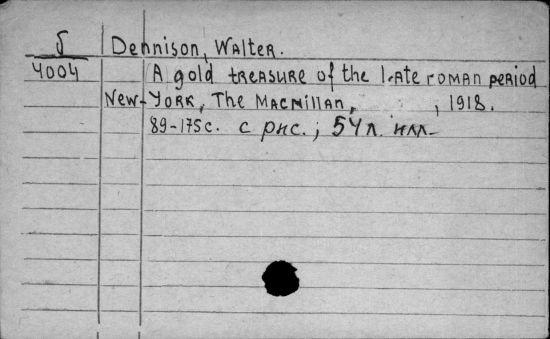 5 Dennison, Walter.
4004 A gold treasure of the late roman period
New-York, The Macmillan, , 1918.
89-175 с. с рис.; 54 л. илл-